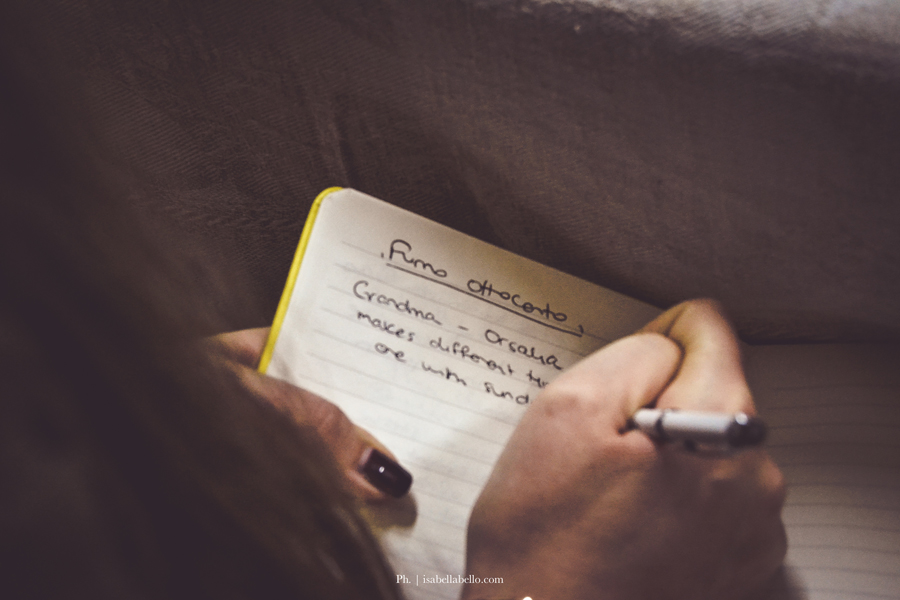 Furno ottocento
Grandma - Orsolia
makes different
one with
Ph. | isabellabello.com